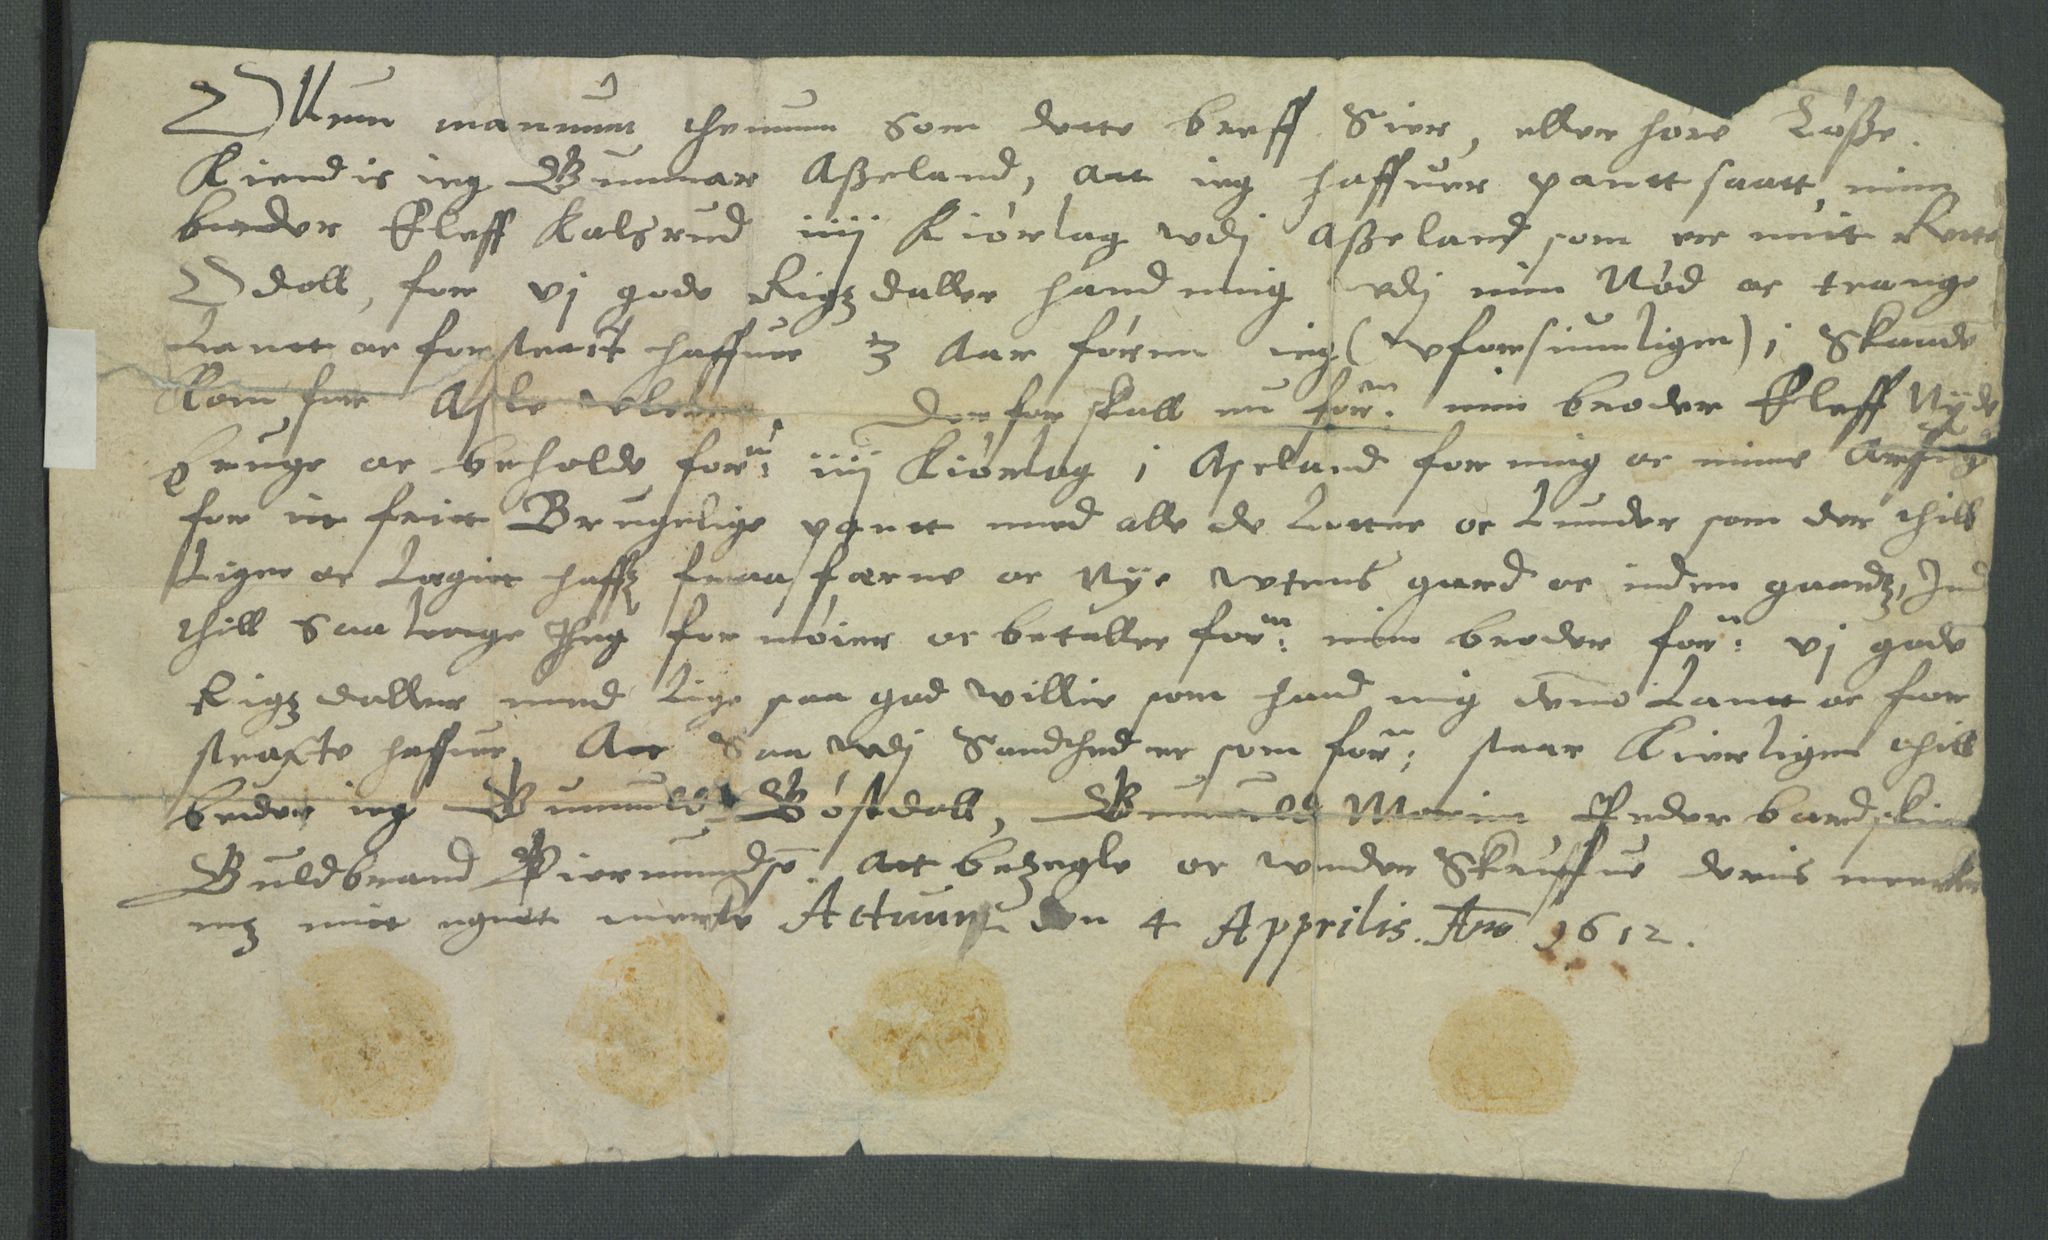 Ollom mannom themom som dette breff Sier, eller hore Løsse.
Kiendis ieg Gunnar Asseland, att ieg haffuer pantt saatt, min
broder Eleff Kalsrud iiij Kiørlag vdj Asseland som er mit Rette
Odell, for vj gode Rigzdaller hand mig vdj min Nød oc trange
Lantt oc forstract haffuer 3 Aar førrin ieg (vforsiunligen) i Skaade
Kom for Asle . Der for skall nu forn: min broder Eleff Nyde
bruge oc beholde forn: iiij Kiørlag i Aseland for mig oc mine Arffuge
for it friit Brugelige pantt med alle de Lutter oc Lunder som der thill
Ligger oc Legiet haffr fraa forne oc Nye wtens gard oc inden gaardz, Ind
thill Saa lenge Jeg for nøier oc betaller forn: min broder forn: vj gode
Rigzdaller med Lige saa god willie som hand mig dennō Lantt oc for
stracte haffuer. Att Saa vdj Sandhed er som forn: staar Kierligen thill
beder ieg Gunnuld Gøstdall, Gunnuld Moeim Peder bardskier
Guldbrand Biermundsø. Att besegle oc wnder Skriffue deris mercker
mz mit egnett mercke Acttuum den 4 Apprilis. Ano 1612.